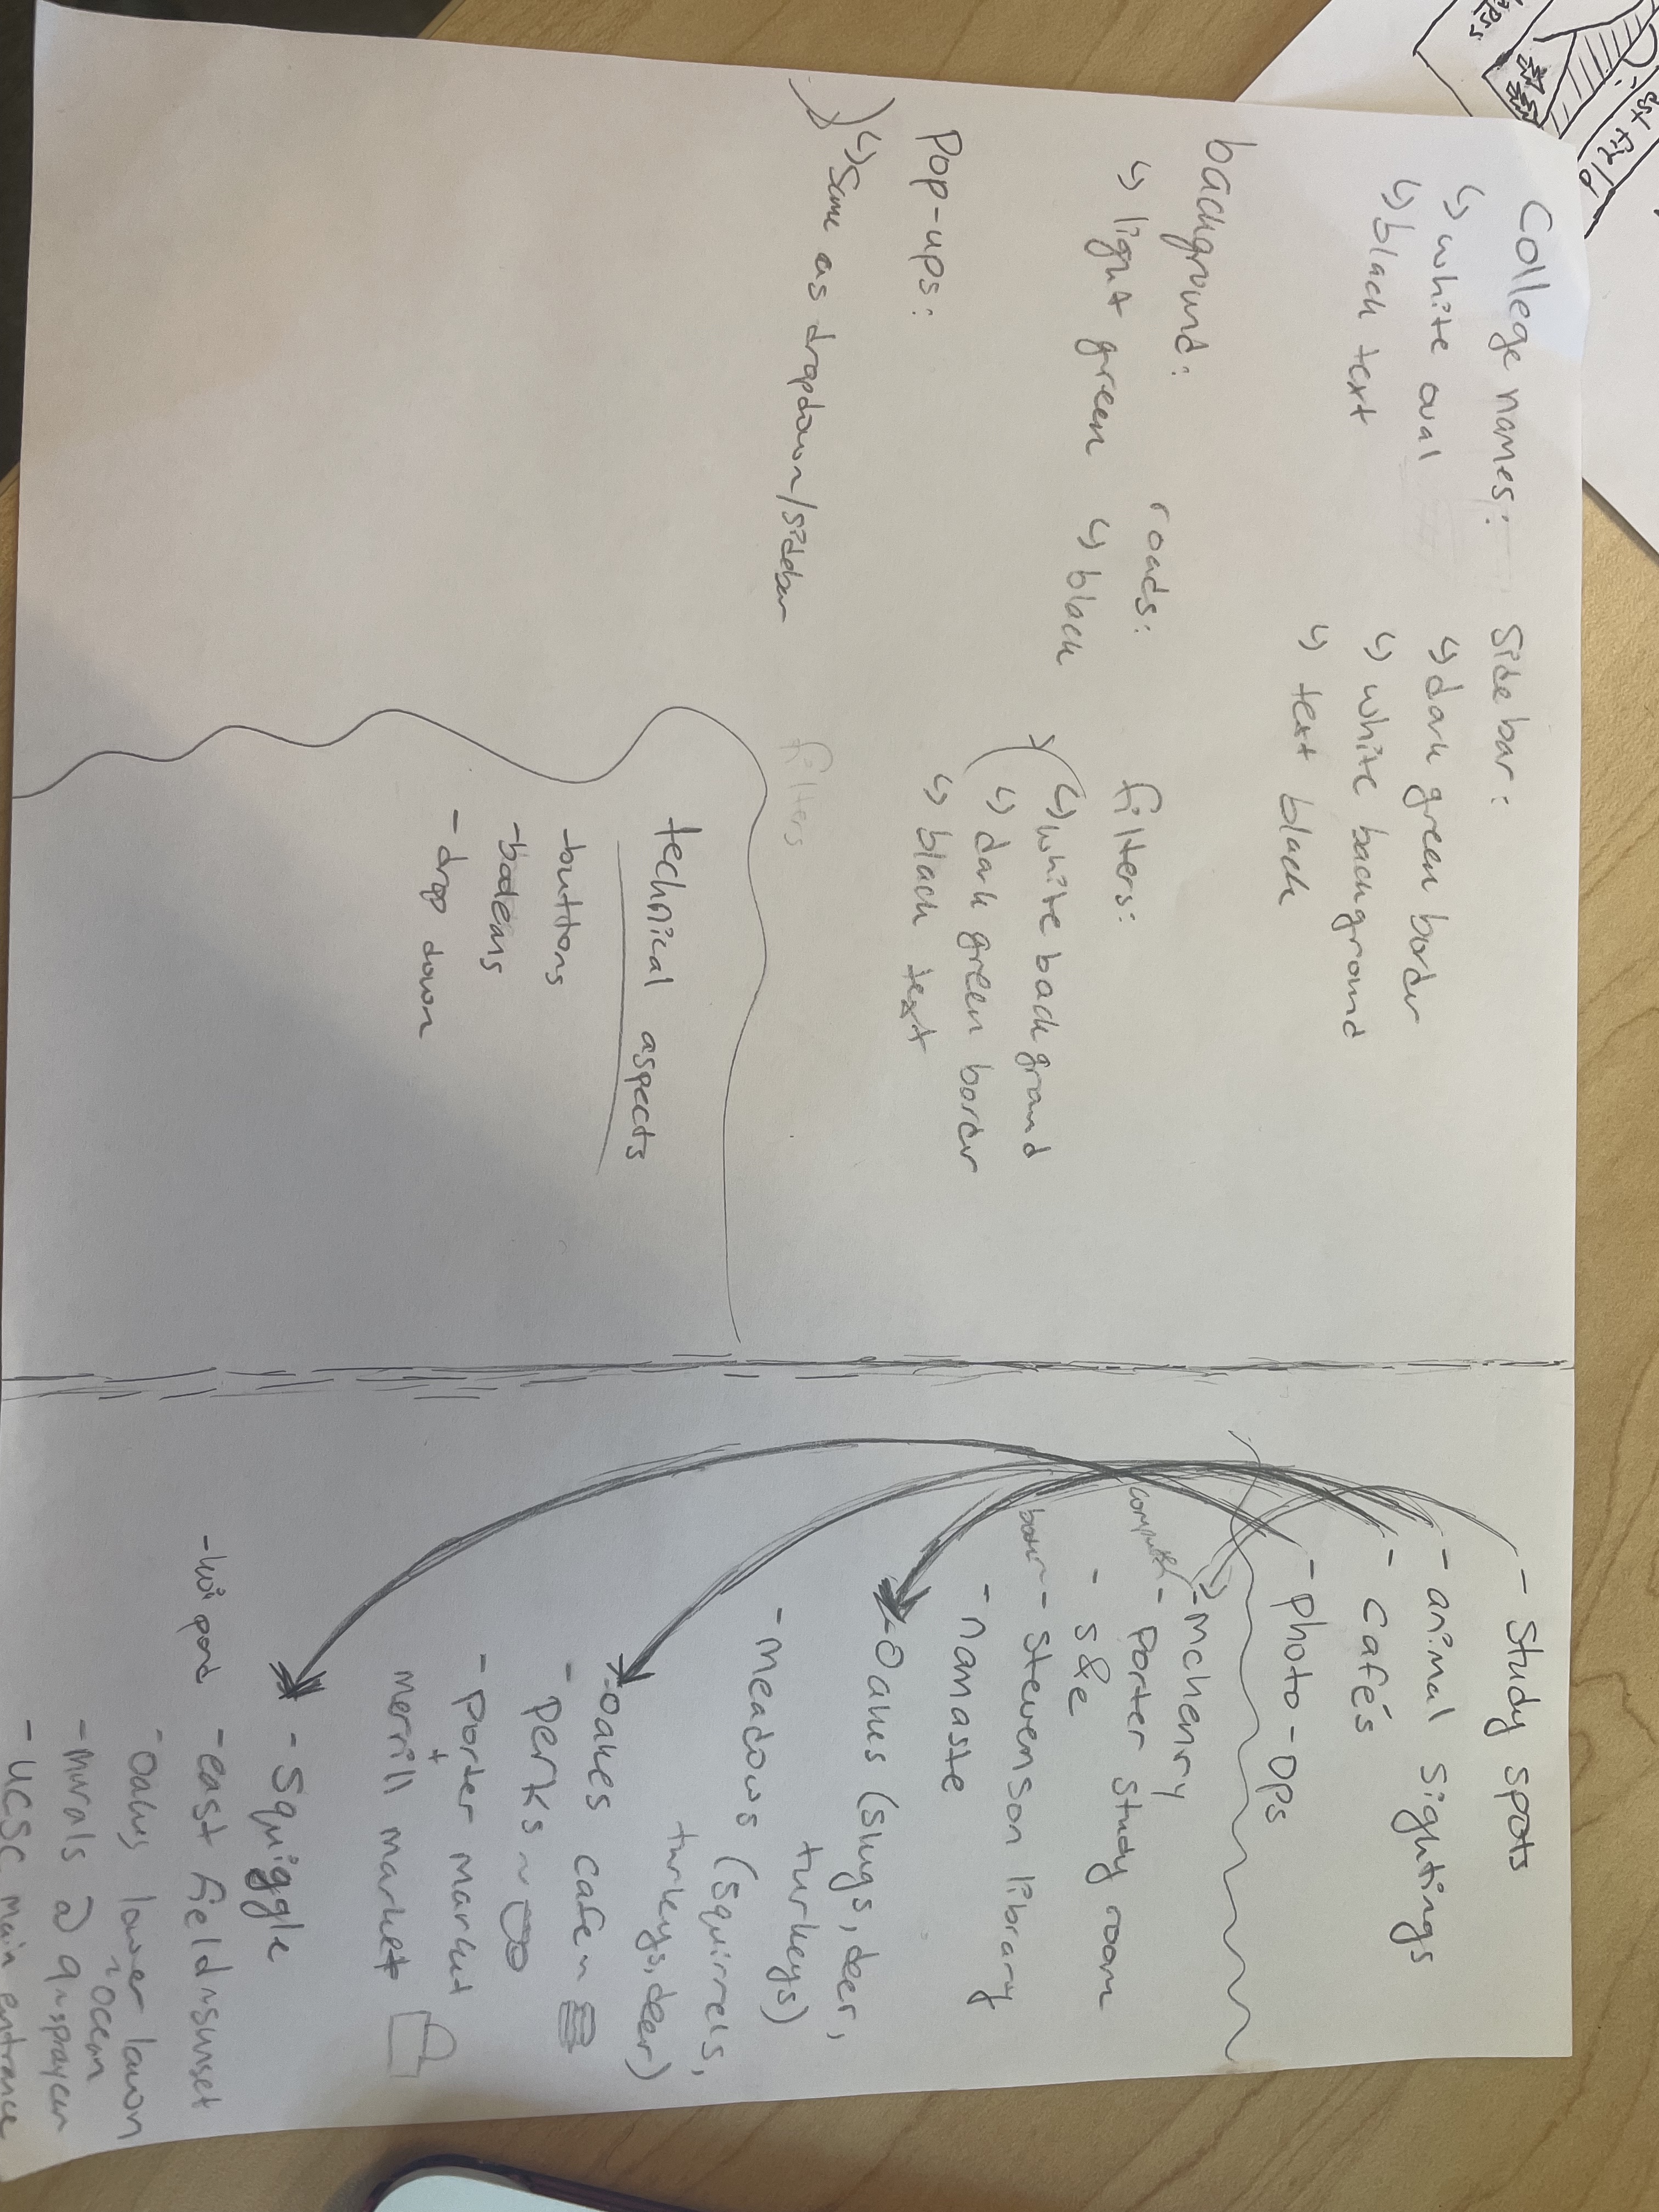 College names:
↳ white oval
↳ black text
Sidebar:
↳ dark green border
↳ white background
↳ text black
background:
↳ light green
roads:
↳ black
filters:
↳ white background
↳ dark green border
↳ black text
Pop-ups:
↳ same as dropdown/sidebar
filters
technical aspects
-buttons
- drop down
- Study spots
- animal sightings
- cafés
- photo-ops
- mchenry
- porter study room
- s&e
- stevenson library
- namaste
- Oakes (slugs, deer,
turkeys)
- meadows (squirrels,
turkeys, deer)
- oakes cafe ~
- perks ~
- porter market
+
merrill market
- squiggle
- koi pond
- east field ~ sunset
- oakes lower lawn
~ ocean
- murals @ 9 ~ spraycan
- UCSC main entrance